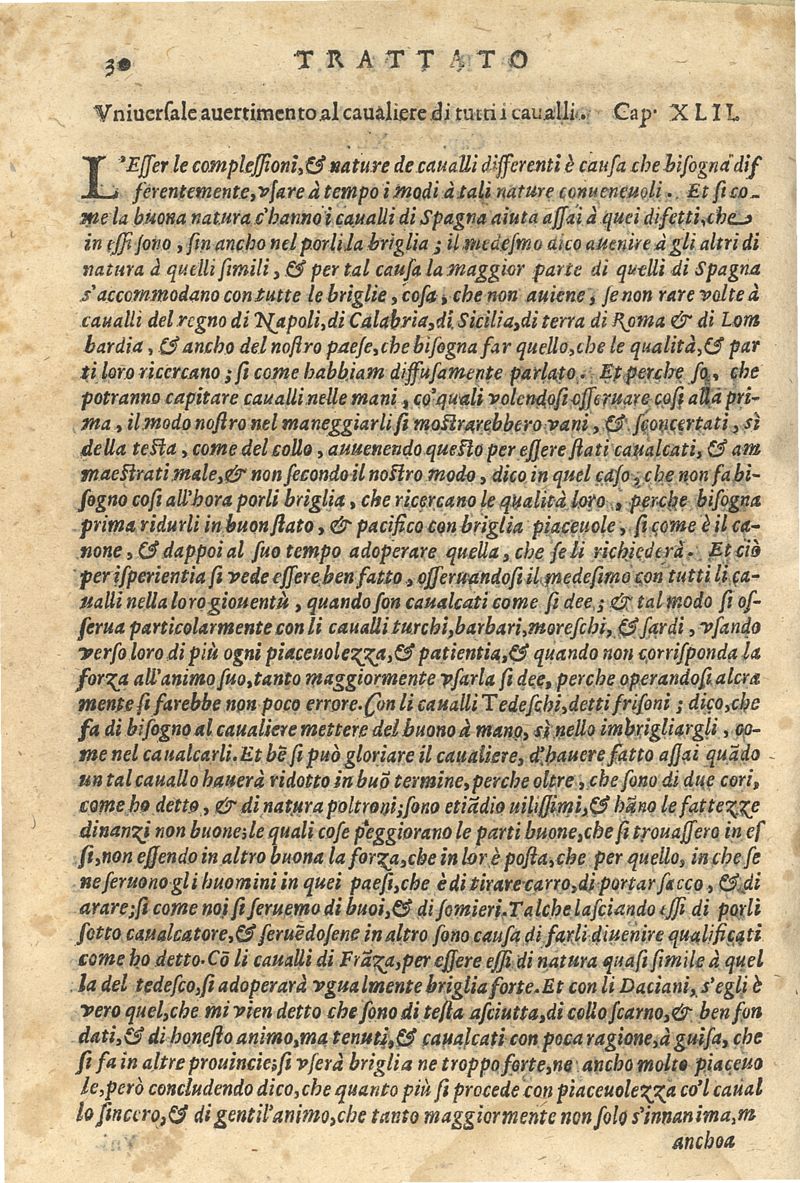 30 TRATTATO
Vniuersale auertimento al caualiere di tutti i caualli. Cap. XLII.
L'Esser le complessioni, & nature de caualli differenti è causa che bisogna dif
ferentemente, vsare à tempo i modi à tali nature conueneuoli. Et si co-
me la buona natura c'hanno i caualli di Spagna aiuta assai à quei difetti, che
in essi sono, sin ancho nel porli la briglia; il medesmo dico auenire à gli altri di
natura à quelli simili, & per tal causa la maggior parte di quelli di Spagna
s'accommodano con tutte le briglie, cosa, che non auiene, se non rare volte à
caualli del regno di Napoli, di Calabria, di Sicilia, di terra di Roma & di Lom
bardia, & ancho del nostro paese, che bisogna far quello, che le qualità, & par
ti loro ricercano; si come habbiam diffusamente parlato. Et perche so, che
potranno capitare caualli nelle mani, co' quali volendosi osseruare cosi alla pri-
ma, il modo nostro nel maneggiarli si mostrarebbero vani, & sconcertati, sì
della testa, come del collo, auuenendo questo per essere stati caualcati, & am
maestrati male, & non secondo il nostro modo, dico in quel caso, che non fa bi-
sogno cosi all'hora porli briglia, che ricercano le qualità loro, perche bisogna
prima ridurli in buon stato, & pacifico con briglia piaceuole, si come è il ca-
none, & dappoi al suo tempo adoperare quella, che se li richiederà. Et ciò
per isperientia si vede essere ben fatto, osseruandosi il medesimo con tutti li ca-
ualli nella loro giouentù, quando son caualcati come si dee; & tal modo si os-
serua particolarmente con li caualli turchi, barbari, moreschi, & sardi, vsando
verso loro di più ogni piaceuolezza, & patientia, & quando non corrisponda la
forza all'animo suo, tanto maggiormente vsarla si dee, perche operandosi alcra
mente si farebbe non poco errore. Con li caualli Tedeschi, detti frisoni; dico, che
fa di bisogno al caualiere mettere del buono à mano, sì nello imbrigliargli, co-
me nel caualcarli. Et bẽ si può gloriare il caualiere, d'hauere fatto assai quãdo
un tal cauallo hauerà ridotto in buõ termine, perche oltre, che sono di due cori,
come ho detto, & di natura poltroni; sono etiãdio uilissimi, & hãno le fattezze
dinanzi non buone; le quali cose peggiorano le parti buone, che si trouassero in es
si, non essendo in altro buona la forza, che in lor è posta, che per quello, in che se
ne seruono gli huomini in quei paesi, che è di tirare carro, di portar sacco, & di
arare; si come noi si seruemo di buoi, & di somieri. Talche lasciando essi di porli
sotto caualcatore, & seruẽdosene in altro sono causa di farli diuenire qualificati
come ho detto. Cõ li caualli di Frãza, per essere essi di natura quasi simile à quel
la del tedesco, si adoperarà vgualmente briglia forte. Et con li Daciani, s'egli è
vero quel, che mi vien detto che sono di testa asciutta, di collo scarno, & ben fon
dati, & di honesto animo, ma tenuti, & caualcati con poca ragione, à guisa, che
si fa in altre prouincie; si vserà briglia ne troppo forte, ne ancho molto piaceuo
le, però concludendo dico, che quanto più si procede con piaceuolezza co'l caual
lo sincero, & di gentil'animo, che tanto maggiormente non solo s'innanima, m
anchoa